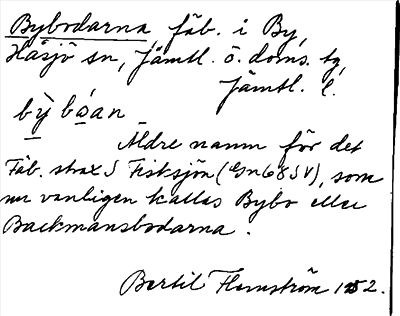 Bybodarna, fäb. i By,
Håsjö sn, Jämtl. ö. doms. tg,
Jämtl. l.
bỳ bóan
Äldre namn för det
Fäb. strax S Fisksjön (Gn68SV), som
nu vanligen kallas Bybo eller
Backmansbodarna.
Bertil Flemström 1952.